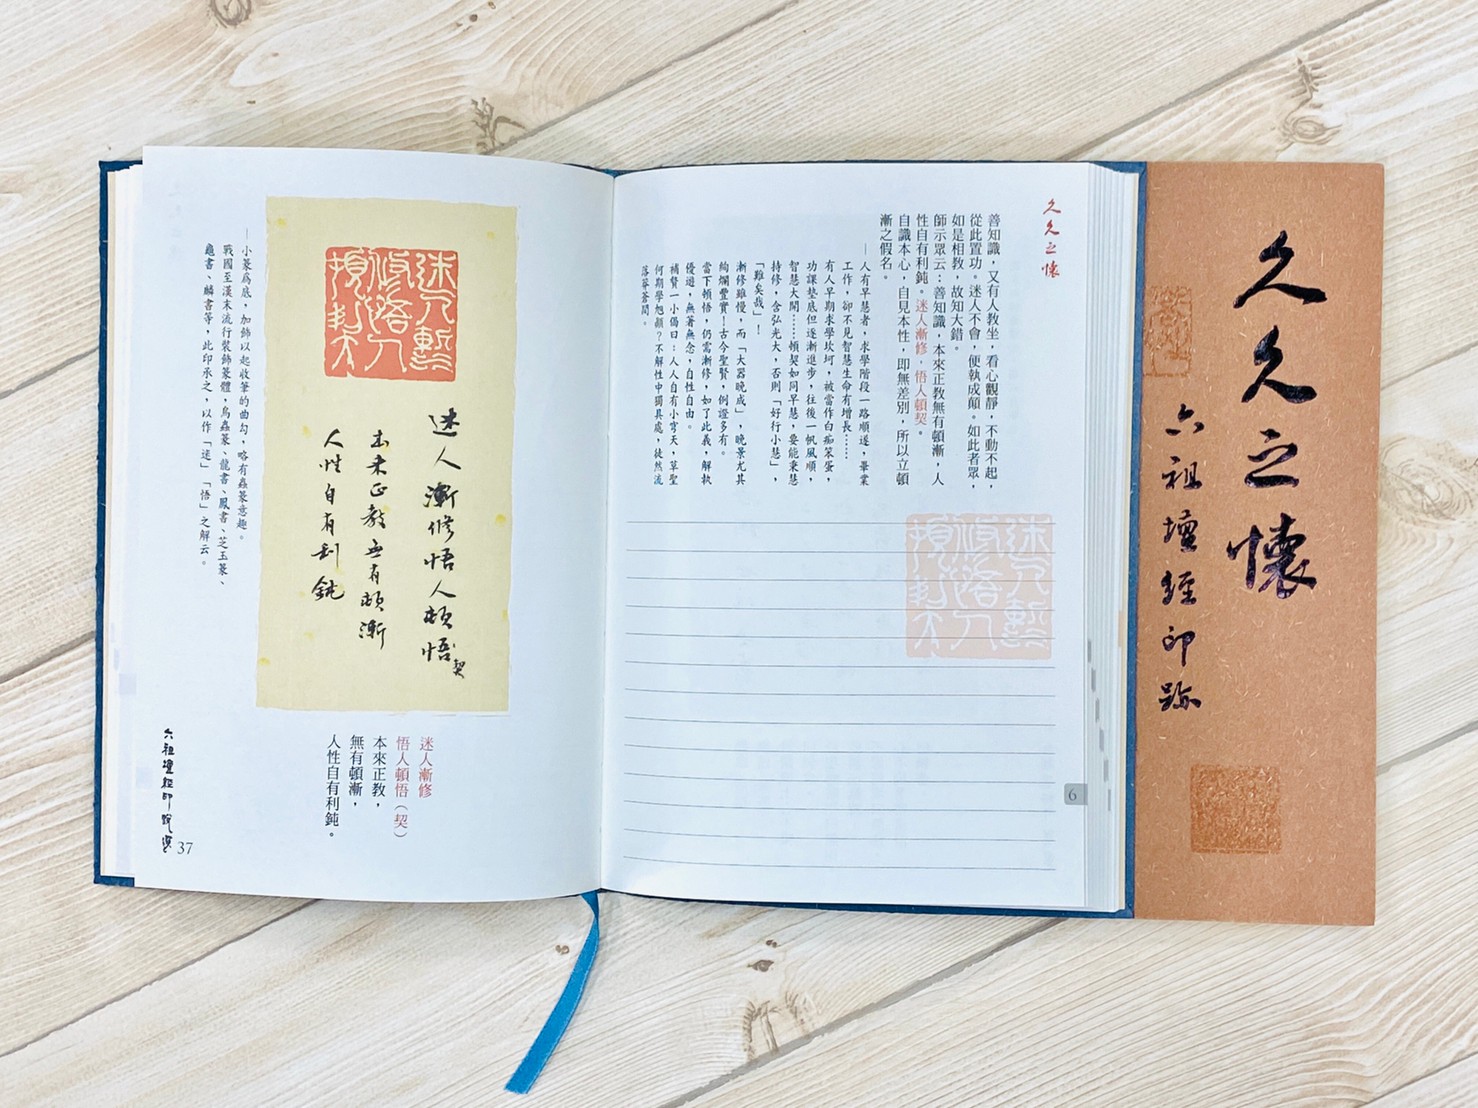 久久之懷
六祖壇經印跡
久久之懷
善知識，又有人教坐，看心觀靜，不動不起，
從此置功。迷人不會，便執成顛。如此者眾，
如是相教，故知大錯。
師示眾云：善知識，本來正教無有頓漸，人
性自有利鈍。迷人漸修，悟人頓契。
自識本心，自見本性，即無差別，所以立頓
漸之假名。
—人有早慧者，求學階段一路順遂，畢業
工作，卻不見智慧生命有增長……
有人早期求學坎坷，被當作白痴笨蛋，
功課墊底但逐漸進步，往後一帆風順，
智慧大開……頓契如同早慧，要能秉慧
持修，含弘光大，否則「好行小慧」，
「難矣哉」！
漸修雖慢，而「大器晚成」，晚景尤其
絢爛豐實！古今聖賢，例證多有。
當下頓悟，仍需漸修，如了此義，解執
優遊，無著無念，自性自由。
補贊一小偈曰：人人自有小天，草聖
何期學旭顛？不解性中獨具處，徒然流
落蒼間。
6
迷人漸修悟人頓悟契
本來正教無有頓漸
人性自有利鈍
迷人漸修
悟人頓悟（契）
本來正教，
無有頓漸，
人性自有利鈍。
—小篆為底，加飾以起收筆的曲勾，略有蟲篆意趣。
戰國至漢末流行裝飾篆體，鳥蟲篆、龍書、鳳書、芝玉篆、
龜書、麟書等，此印承之，以作「迷」「悟」之解云。
六祖壇經印
37